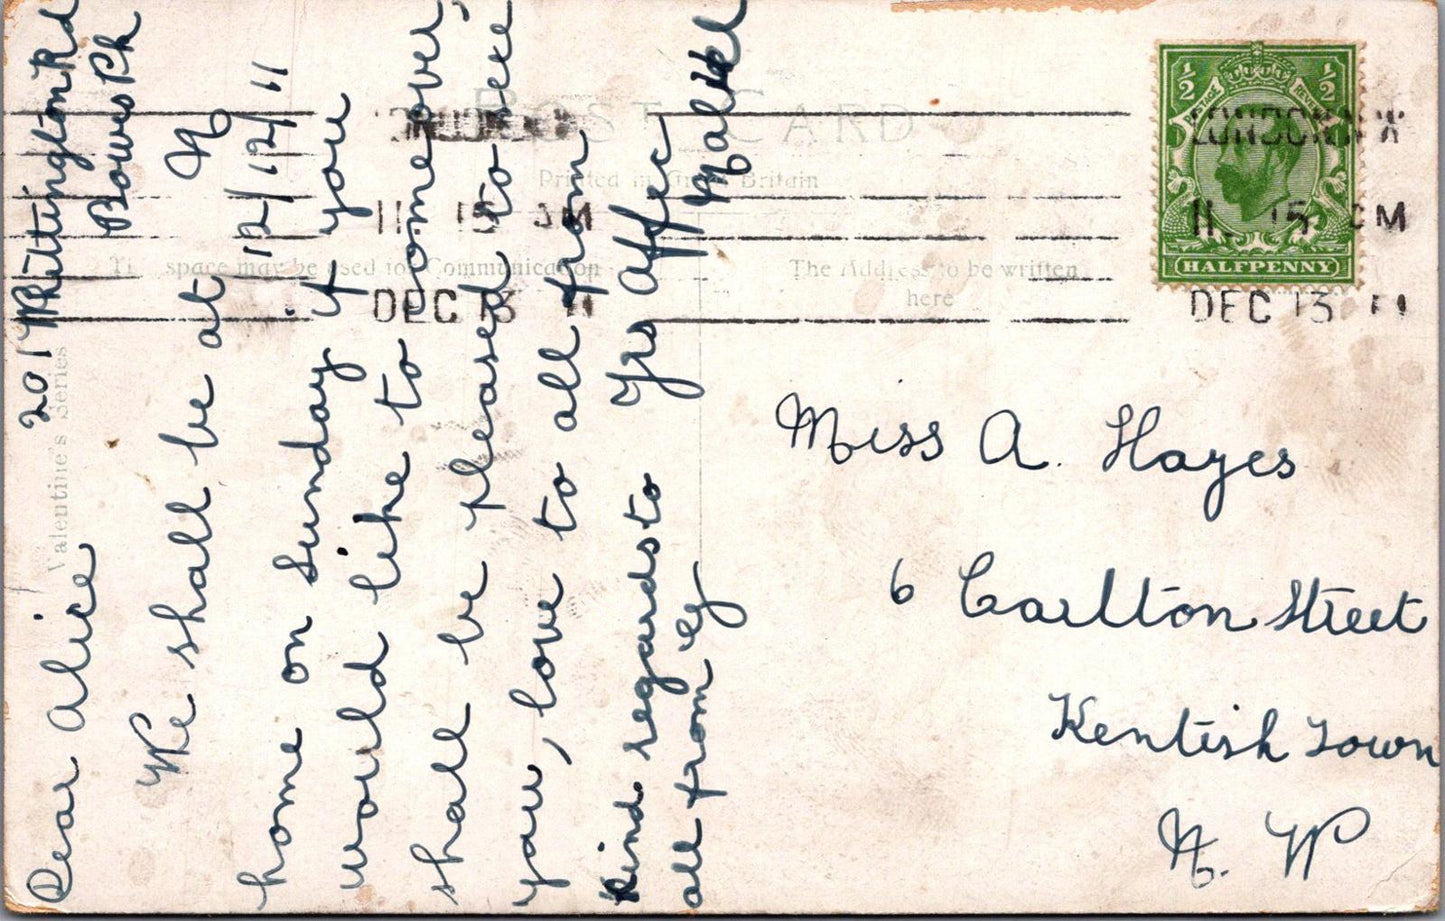 POST CARD
Printed in Great Britain
This space may be used for Communication
The Address to be written
here
Valentine's Series
201 Whittington Rd
Bowes Pk
N
12/12/11
Dear Alice
We shall be at
home on Sunday if you
would like to come over,
shall be pleased to see
you, love to all from
Kind regards to Yrs Affec
all from Mabel
½ ½
POSTAGE REVENUE
HALFPENNY
LONDON N.W
11. 15 AM
DEC 13 11
11 15 AM
DEC 13 11
Miss A. Hayes
6 Carlton Street
Kentish Town
N. W